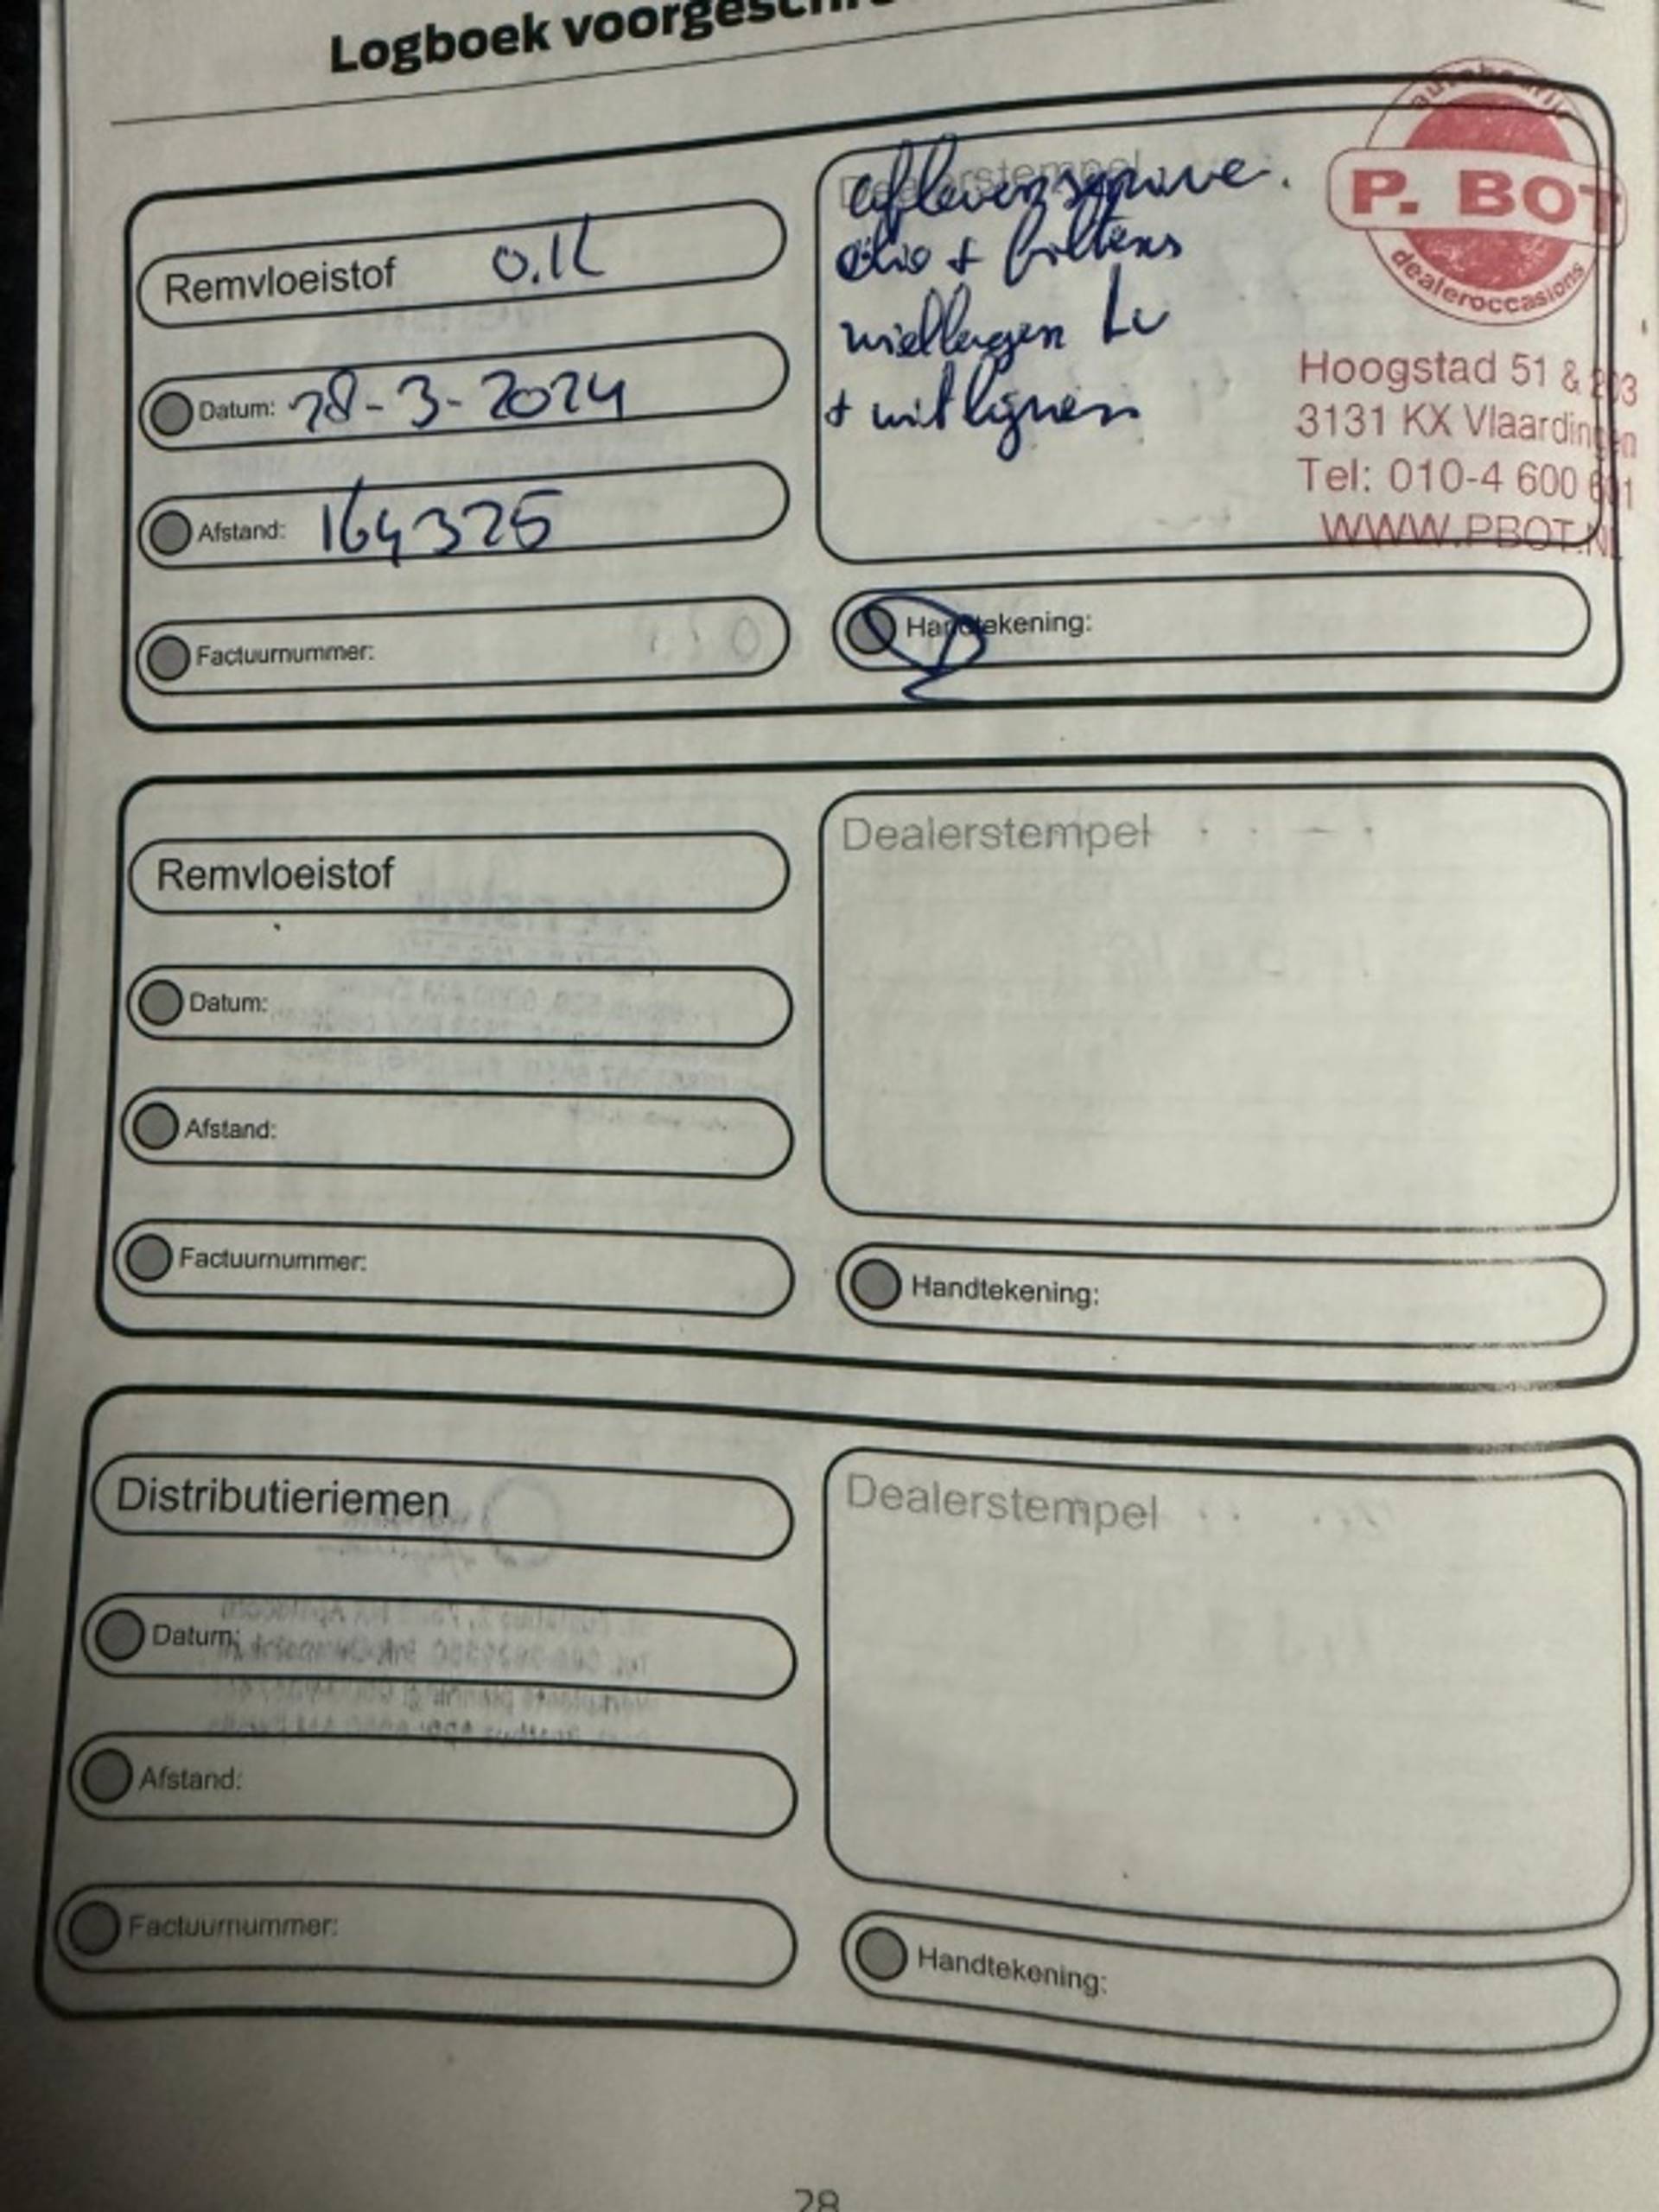 Logboek voorgeschre
Remvloeistof O.K
Datum: 28-3-2024
Afstand: 164325
Factuurnummer:
Dealerstempel
afleversservice.
olie + filters
wiellagers Lv
+ uitlijnen
autobedrijf
P. BOT
dealeroccasions
Hoogstad 51 & 203
3131 KX Vlaardingen
Tel: 010-4 600 601
WWW.PBOT.NL
Handtekening:
Remvloeistof
Datum:
Afstand:
Factuurnummer:
Dealerstempel
Handtekening:
Distributieriemen
Datum:
Afstand:
Factuurnummer:
Dealerstempel
Handtekening:
28